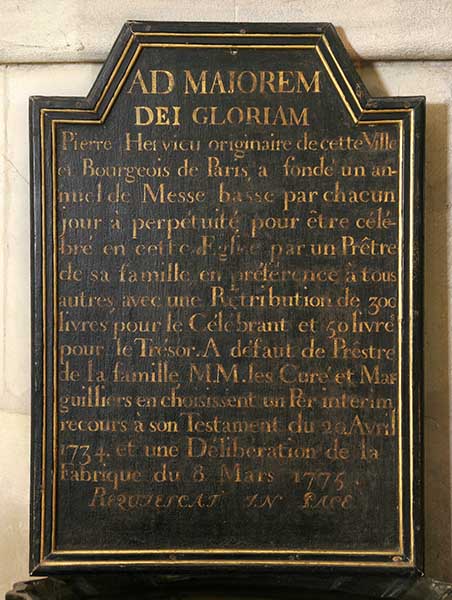 AD MAJOREM
DEI GLORIAM
Pierre Hervieu originaire de cette Ville
et Bourgeois de Paris, a fondé un an-
nuel de Messe basse par chacun
jour à perpetuité pour être célé-
bré en cette Eglise par un Prêtre
de sa famille en préférence à tous
autres, avec une Rétribution de 300
livres pour le Célébrant et 50 livre
pour le Trésor. A défaut de Prêstre
de la famille M.M. les Curé et Mar-
guilliers en choisissent un Per interim
recours à son Testament du 29 Avril
1734. et une Déliberation de la
Fabrique du 8 Mars 1775.
REQUIESCAT IN PACE